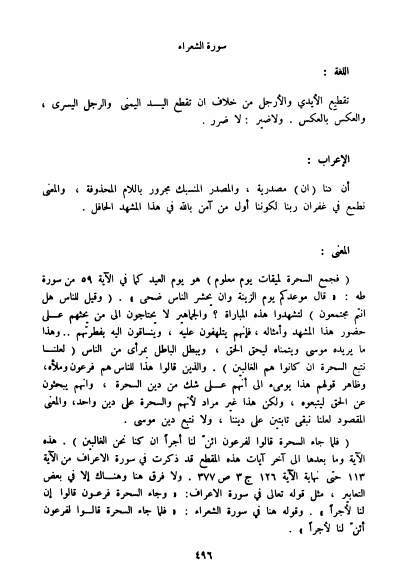 سورة الشعراء
اللغة :
تقطيع الأيدي والأرجل من خلاف ان تقطع اليــد اليمنى والرجل اليسرى ،
والعكس بالعكس . ولاضير : لا ضرر .
الإعراب :
أن دنا ( ان ) مصدرية ، والمصدر المنسبك مجرور باللام المحذوفة ، والمعنى
نطمع في غفران ربنا لكوننا أول من آمن بالله في هذا المشهد الحافل .
المعنى :
( فجمع السحرة لميقات يوم معلوم ) هو يوم العيد كما في الآية ٥٩ من سورة
طه : « قال موعدكم يوم الزينة وان يحشر الناس ضحى » . ( وقيل للناس هل
انتم مجتمعون ) لتشهدوا هذه المباراة ؟ والجماهير لا يحتاجون الى من يحثهم عــلى
حضور هذا المشهد وأمثاله ، فإنهم يتلهفون عليه ، وينساقون اليه بفطرتهم .. وهذا
ما يريده موسى ويتمناه ليحق الحق ، ويبطل الباطل بمرأى من الناس ( لعلنــا
نتبع السحرة ان كانوا هم الغالبين ) . والذين قالوا هذا للناس هم فرعون وملأه،
وظاهر قولهم هذا يومىء الى أنهم عــلى شك من دين السحرة ، وانهم يبحثون
عن الحق ليتبعوه ، ولكن هذا غير مراد لأنهم والسحرة على دين واحد، والمعنى
المقصود لعلنا نبقى ثابتين على ديننا ، ولا نتبع دين موسى .
( فلما جاء السحرة قالوا لفرعون ائن لنا أجراً ان كنا نحن الغالبين ) . هذه
الآية وما بعدها الى آخر آيات هذه المقطع قد ذكرت في سورة الاعراف من الآية
١١٣ حتى نهاية الآية ١٢٦ ج ٣ ص ٣٧٧ . ولا فرق هنا وهنــاك إلا في بعض
التعابير ، مثل قوله تعالى في سورة الاعراف: « وجاء السحرة فرعــون قالوا إن
لنا لأجراً » . وقوله هنا في سورة الشعراء : « فلما جاء السحرة قالــوا لفرعون
أئن لنا لأجراً » .
٤٩٦